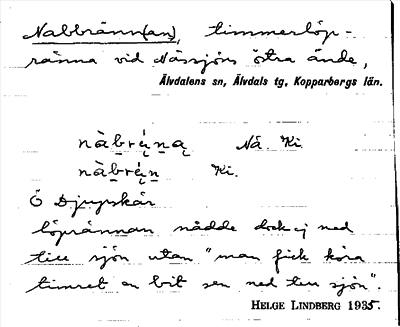 Nabbränn(an), timmerlöp-
ränna vid Nässjöns östra ände,
Älvdalens sn, Älvdals tg, Kopparbergs län.
Nå. Ki.
Ki.
Ö Djupskär
löprännan nådde dock ej ned
till sjön utan "man fick köra
timret en bit sen ned till sjön".
HELGE LINDBERG 1935.